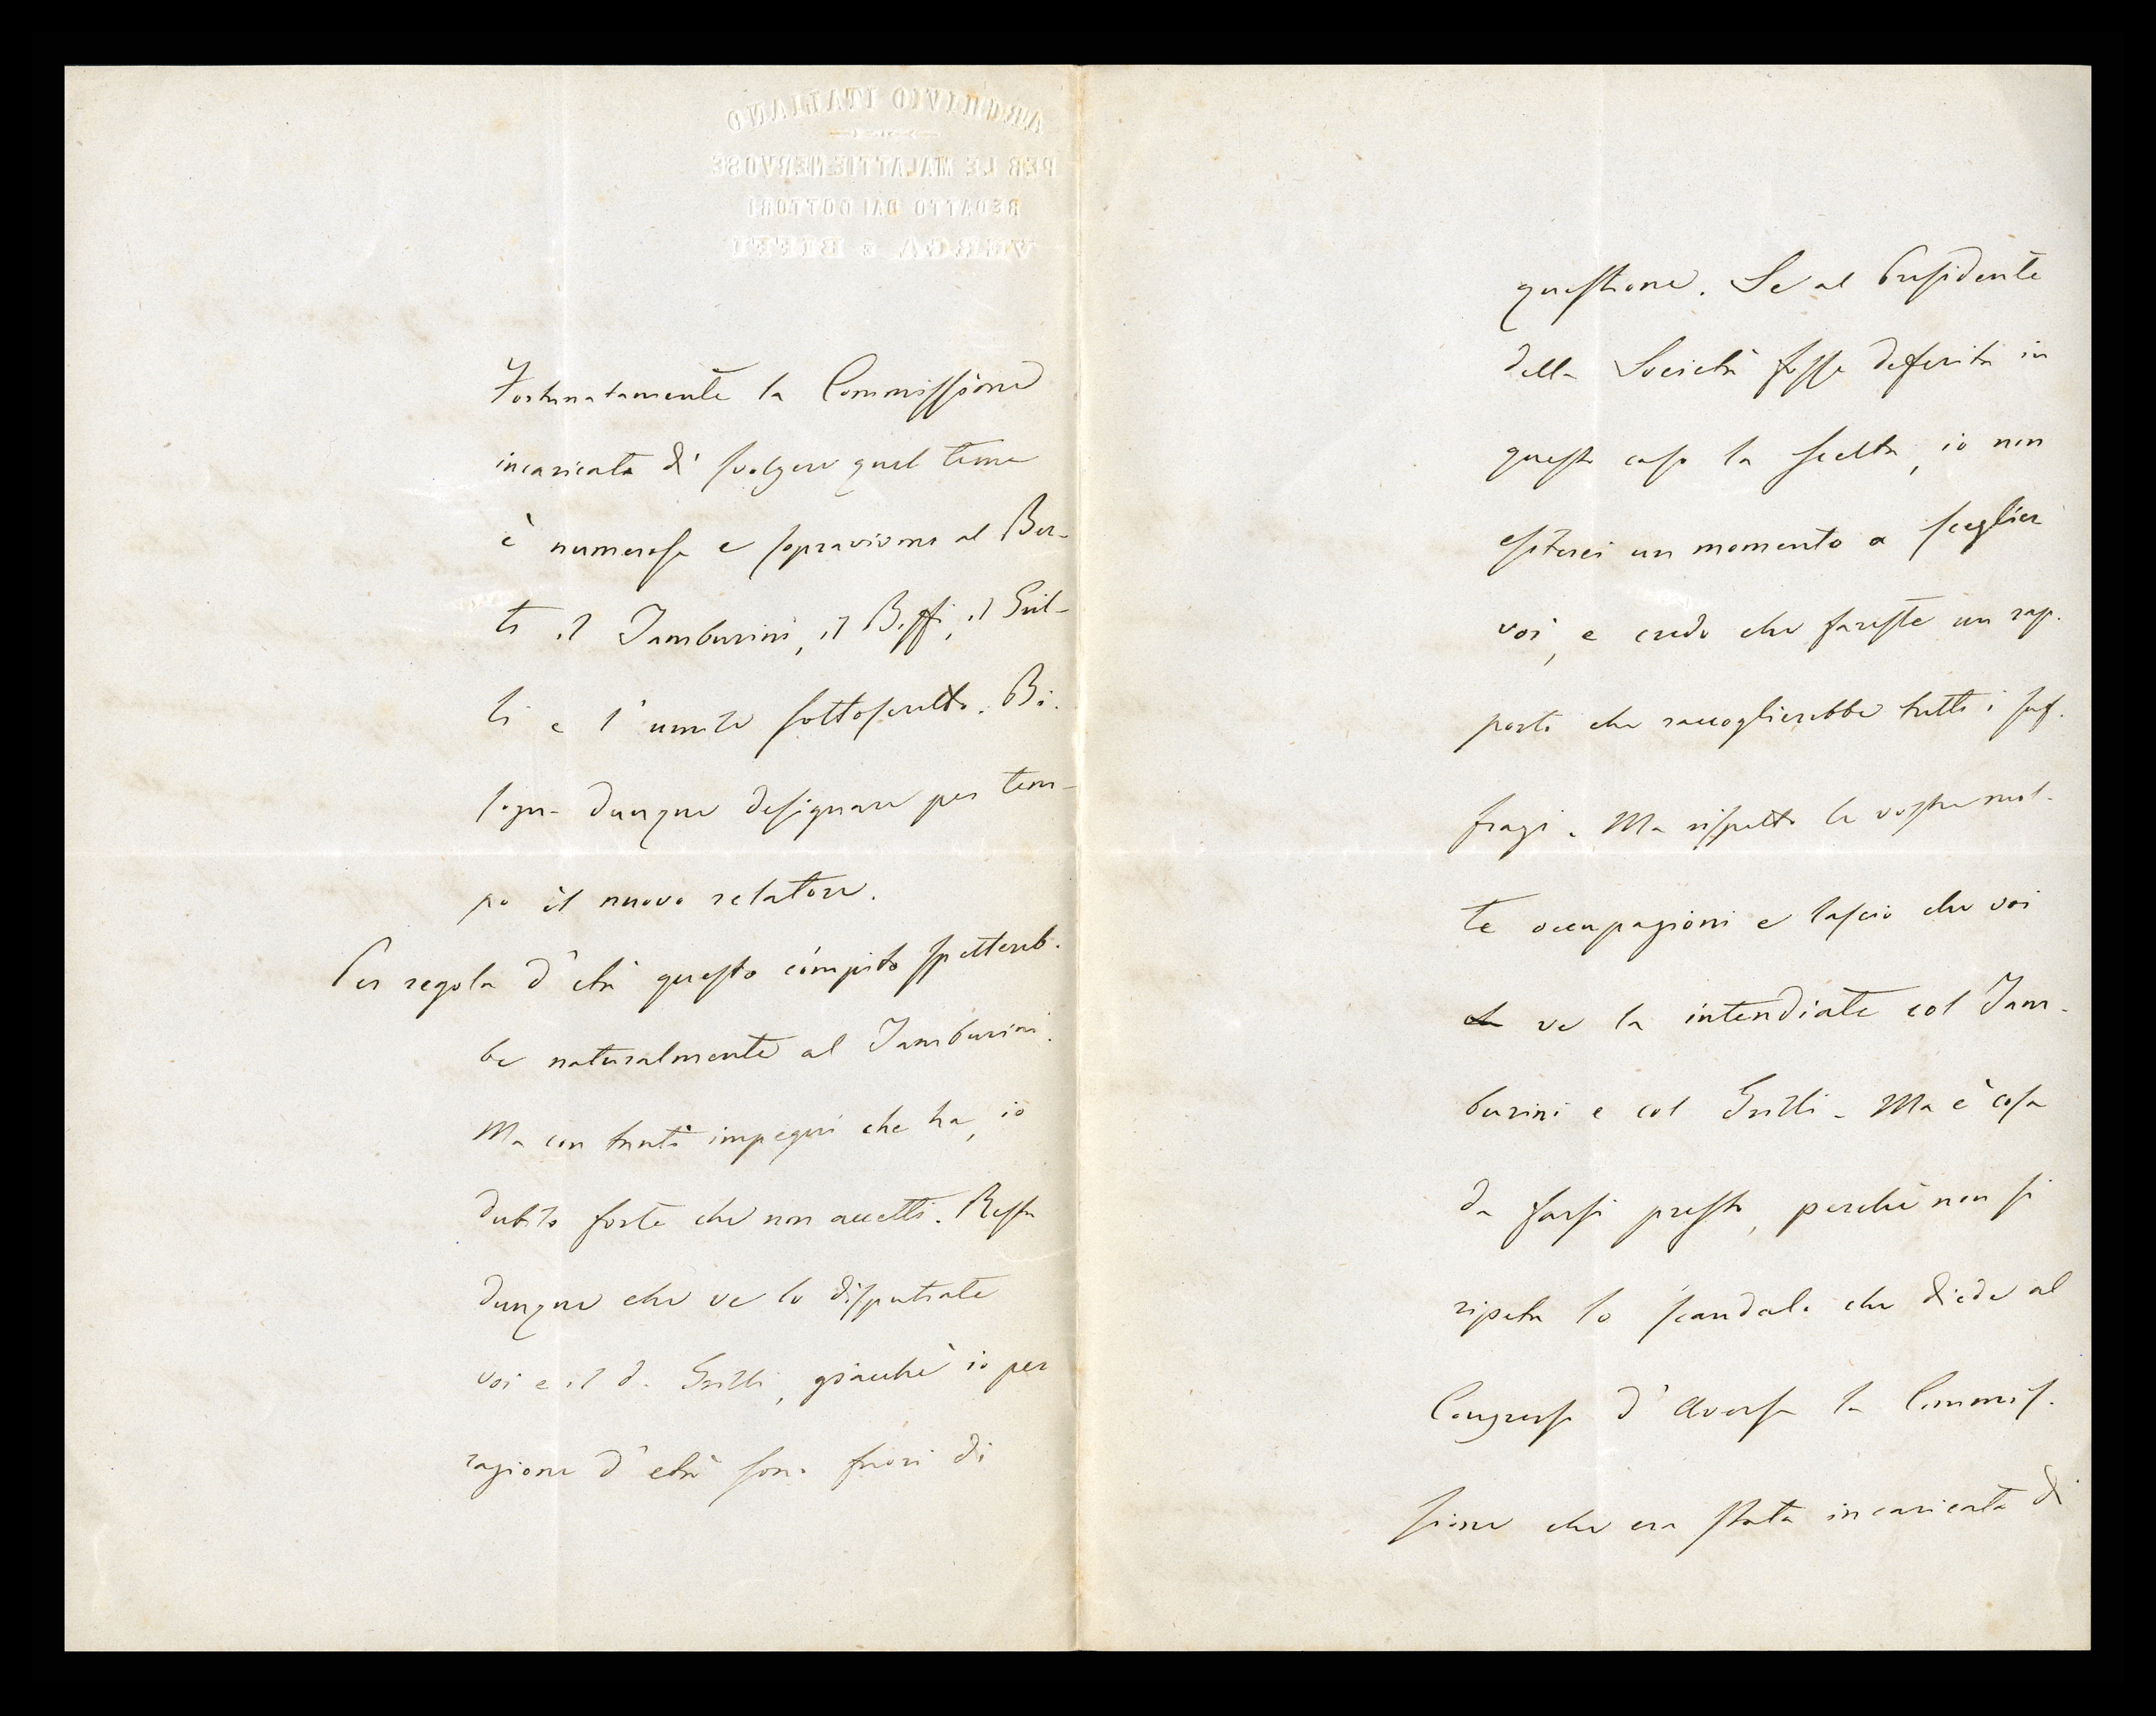 ARCHIVIO ITALIANO
PER LE MALATTIE NERVOSE
REDATTO DAI DOTTORI
VERGA e BIFFI
Fortunatamente la Commissione
incaricata di svolgere quel tema
è numerosa e sopravivono al Ber-
ti il Tamburini, il Biffi, il Gril-
li e l'umile sottoscritto. Bi-
sogna dunque designare per tem-
po il nuovo relatore.
Per regola d'età questo còmpito spettereb-
be naturalmente al Tamburini.
Ma con tanti impegni che ha, io
dubito forte che non accetti. Resta
dunque che ve lo disputiate
voi e il d. Grilli, giacchè io per
ragione d'età sono fuori di
questione. Se al Presidente
della Società fosse deferita in
questo caso la scelta, io non
esiterei un momento a sceglier
voi, e credo che fareste un rap-
porto che raccoglierebbe tutti i suf-
fragi. Ma rispetto le vostre mol-
te occupazioni e lascio che voi
ve la intendiate col Tam-
burini e col Grilli. Ma è cosa
da farsi presto, perchè non si
ripeta lo scandalo che diede al
Congresso d'Aversa la Commis-
sione che era stata incaricata di